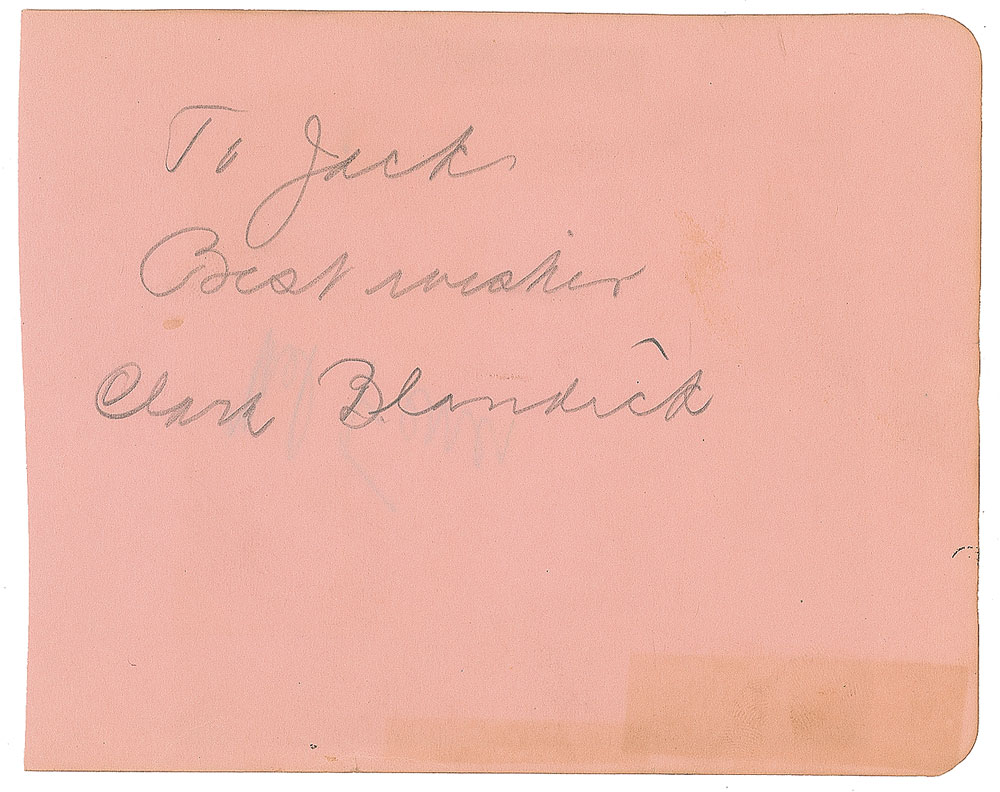 To Jack
Best wishes
Clara Blandick